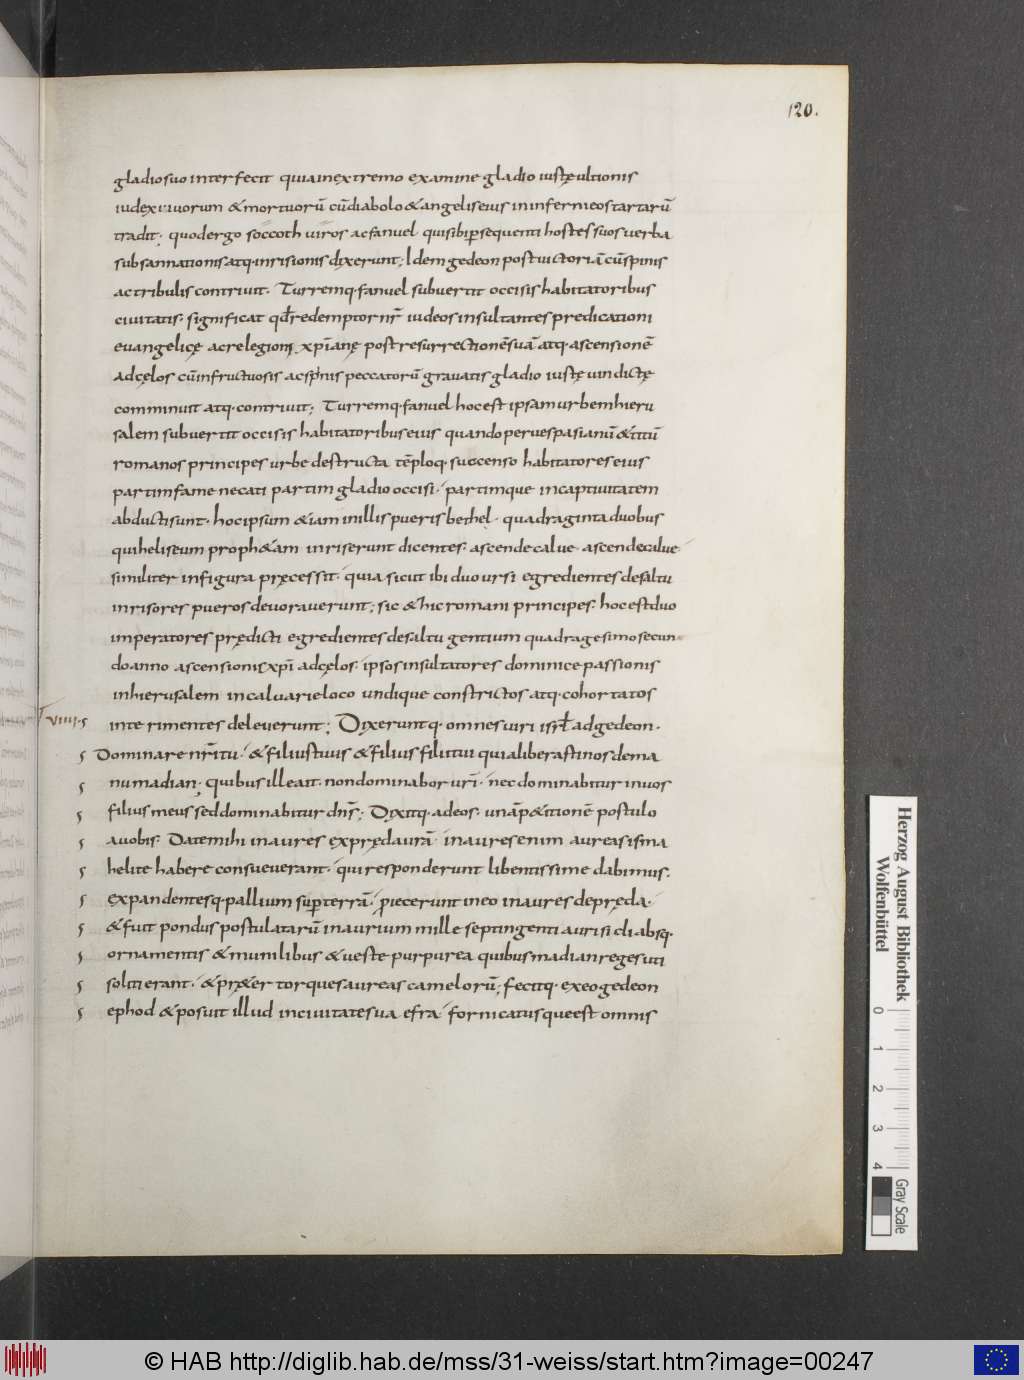 120.
gladio suo interfecit quia in extremo examine gladio iustę ultionis
iudex uiuorum & mortuorū cū diabolo & angelis eius in inferni eos tartarū
tradit; quod ergo soccoth uiros ac fanuel qui sibi p̱sequenti hostes suos uerba
subsannationis atq· inrisionis dixerunt; Idem gedeon post uictoriā cū spinis
ac tribulis contriuit· Turremq· fanuel subuertit occisis habitatoribus
ciuitatis· significat qđ redemptor nr̄ iudeos insultantes predicationi
euangelicę ac relegioni xp̄ianę post resurrectionē suā atq· ascensionē
ad cęlos cū infructuosis ac spinis peccatorū grauatis gladio iustę uindictę
comminuit atq· contriuit; Turremq· fanuel hoc est ipsam urbem hieru
salem subuertit occisis habitatoribus eius quando per uespasianū & titū
romanos principes urbe destructa tēploq· succenso habitatores eius
partim fame necati partim gladio occisi· partimque in captiuitatem
abducti sunt· hoc ipsum & iam in illis pueris bethel· quadraginta duobus
qui heliseum proph&am inriserunt dicentes· ascende calue· ascende calue·
similiter in figura pręcessit· quia sicut ibi duo ursi egredientes de saltu
inrisores pueros deuorauerunt; sic & hic romani principes· hoc est duo
imperatores prędicti egredientes de saltu gentium quadragesimo secun
do anno ascensionis xp̄i ad cęlos· ipsos insultatores dominice passionis
in hierusalem in caluarie loco undique constrictos atq· cohortatos
interimentes deleuerunt; Dixeruntq· omnes uiri isrł ad gedeon·
Dominare nr̄i tu· & filius tuus & filius filii tui quia liberasti nos de ma
nu madian; quibus ille ait· non dominabor ur̄i· nec dominabitur in uos
filius meus sed dominabitur dn̄s; Dixitq· ad eos· unā p&itionē postulo
a uobis· Date mihi inaures ex prędaurā· inaures enim aureas isma
helite habere consueuerant· qui responderunt libentissime dabimus·
expandentesq· pallium sup̱ terrā· p̱iecerunt in eo inaures de pręda·
& fuit pondus postulatarū inaurium mille septingenti auri sicli absq·
ornamentis & munilibus & ueste purpurea quibus madian reges uti
soliti erant· & pr&er torques aureas camelorū; fecitq· ex eo gedeon
ephod & posuit illud in ciuitate sua efra· fornicatusque est omnis
Herzog August Bibliothek
Wolfenbüttel
0 1 2 3 4
Gray Scale
© HAB http://diglib.hab.de/mss/31-weiss/start.htm?image=00247